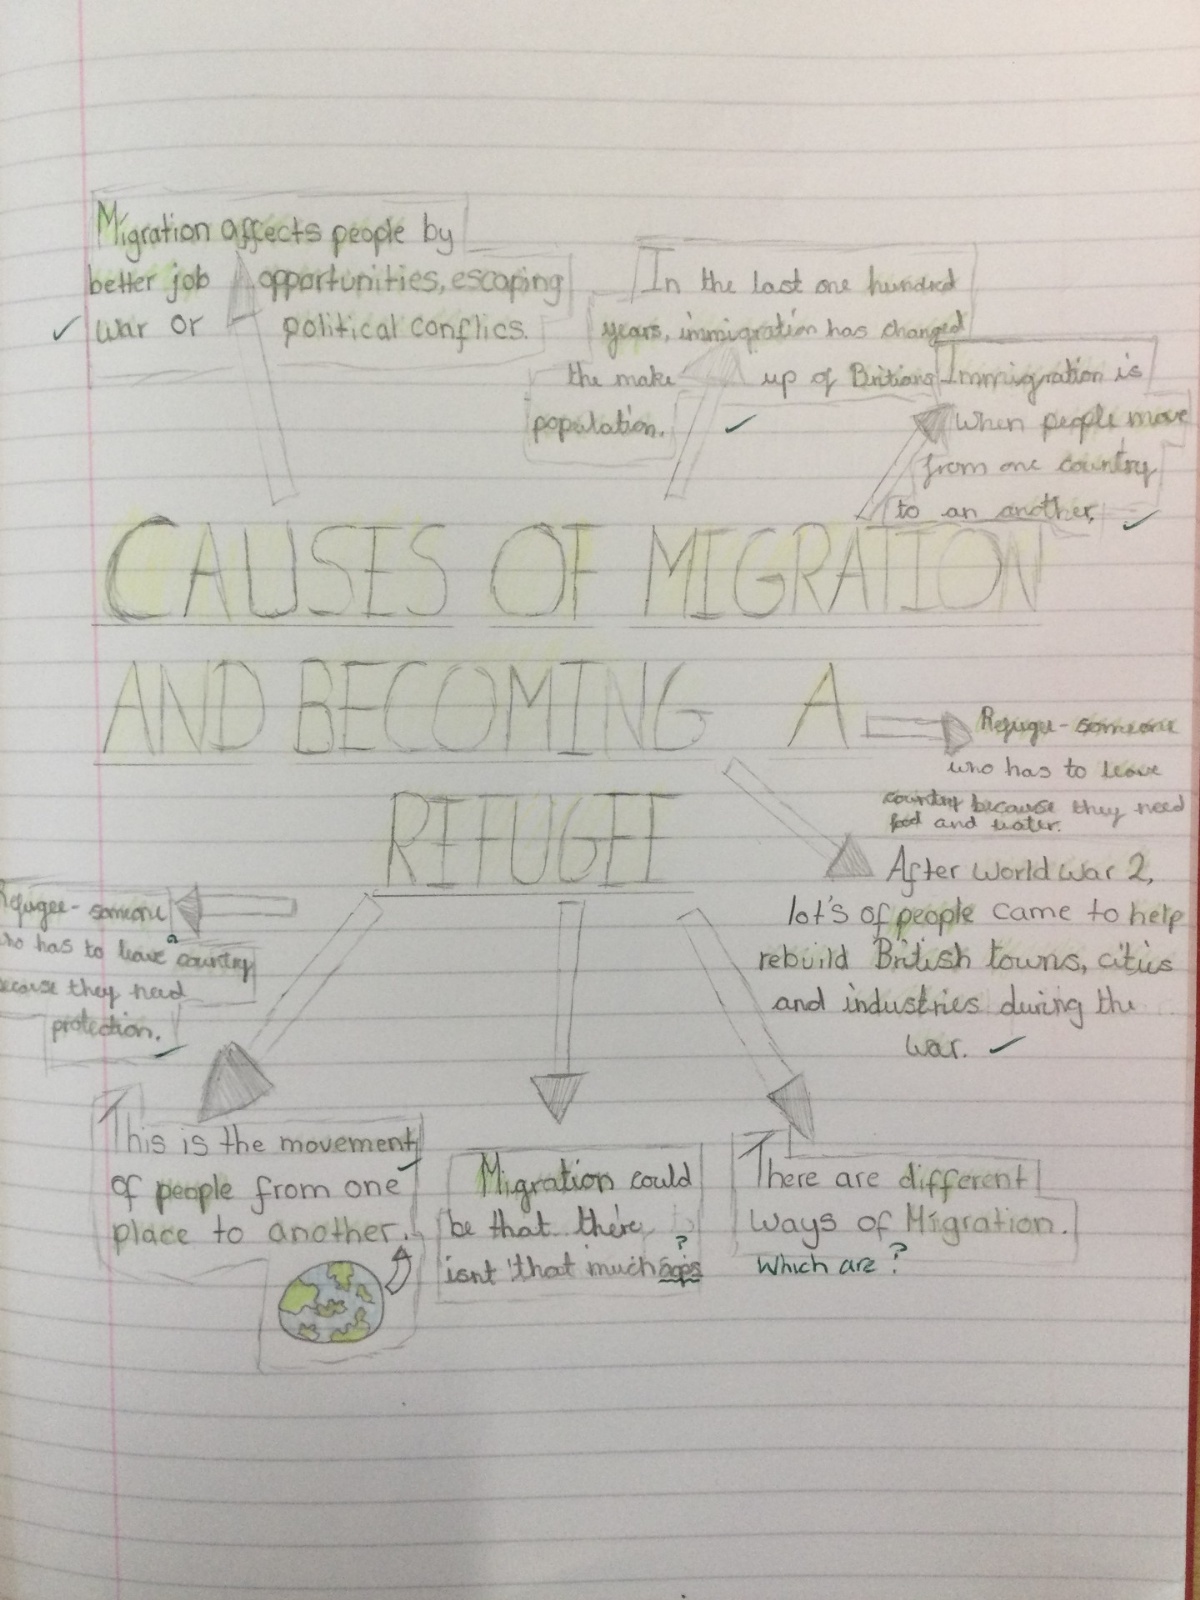 Migration affects people by
better job opportunities, escaping
war or political conflics.
In the last one hundred
years, immigration has changed
the make up of Britians
population.
Immigration is
when people move
from one country
to an another.
CAUSES OF MIGRATION
AND BECOMING A
REFUGEE
Refugee - someone
who has to leave
country because they need
food and water.
After World War 2,
lot's of people came to help
rebuild British towns, cities
and industries during the
war.
Refugee - someone
who has to leave country
because they need
protection.
This is the movement
of people from one
place to another.
Migration could
be that there
isnt that much
?
There are different
ways of Migration.
Which are?